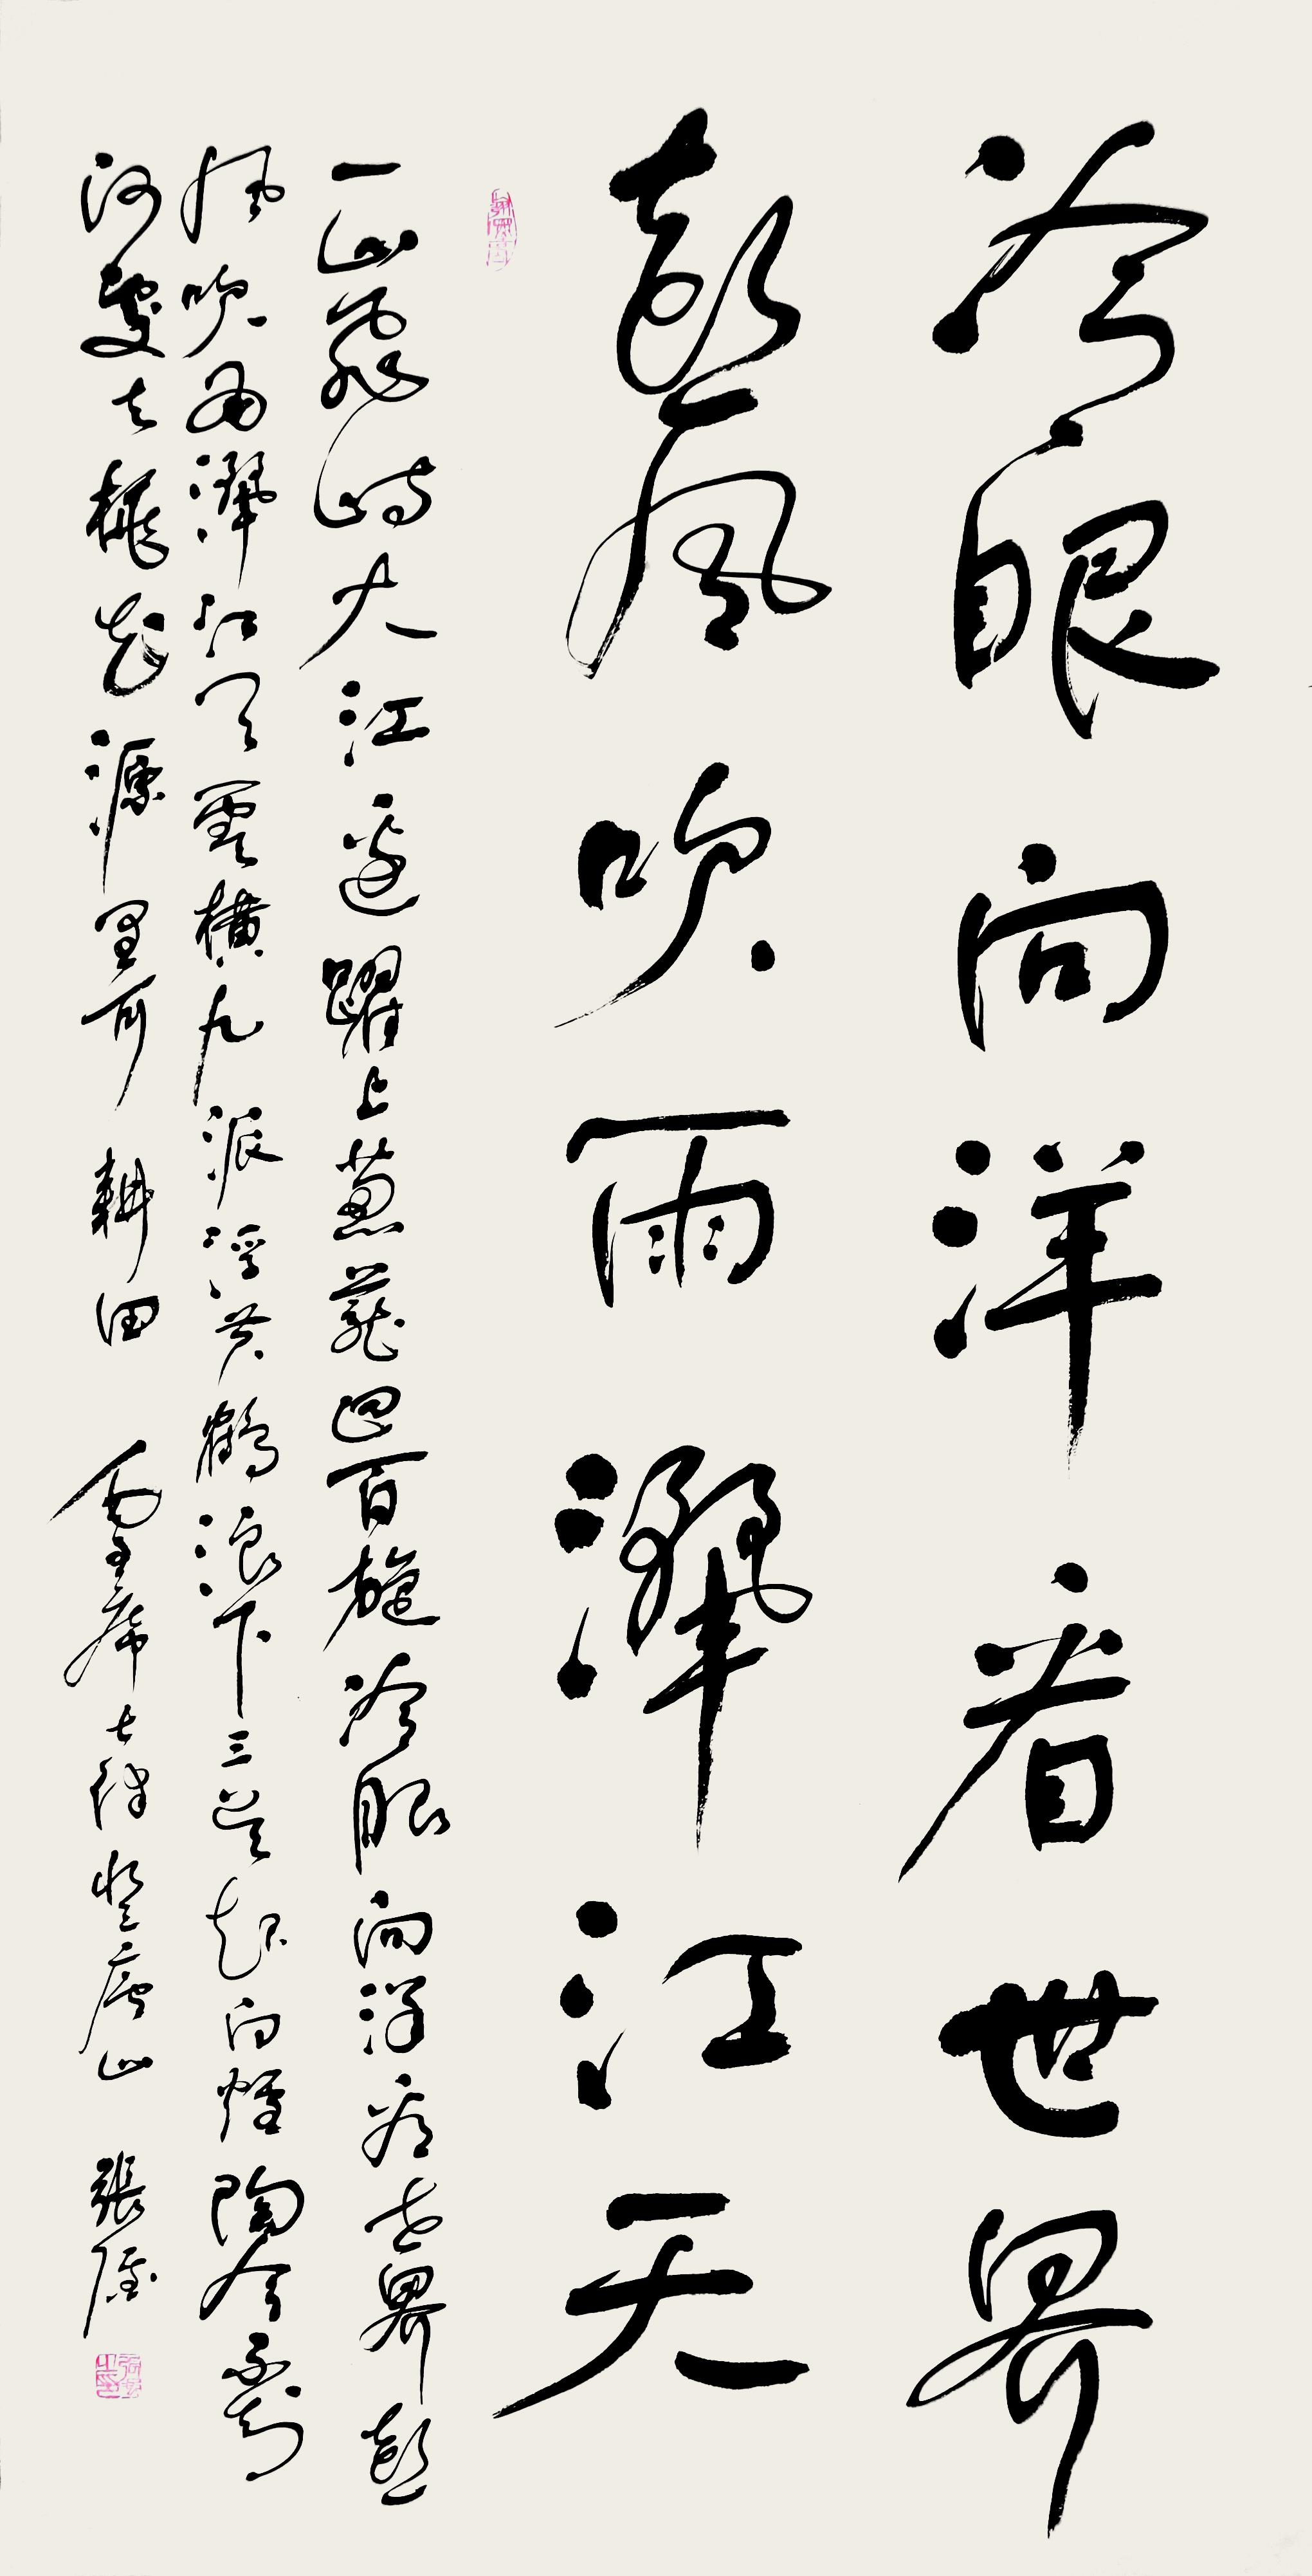 冷眼向洋看世界
熱風吹雨灑江天
一山飛峙大江邊躍上葱蘢四百旋冷眼向洋看世界熱
風吹雨灑江天雲橫九派浮黄鶴浪下三吴起白煙陶令不知
何處去桃花源里可耕田 毛主席七律登廬山 張